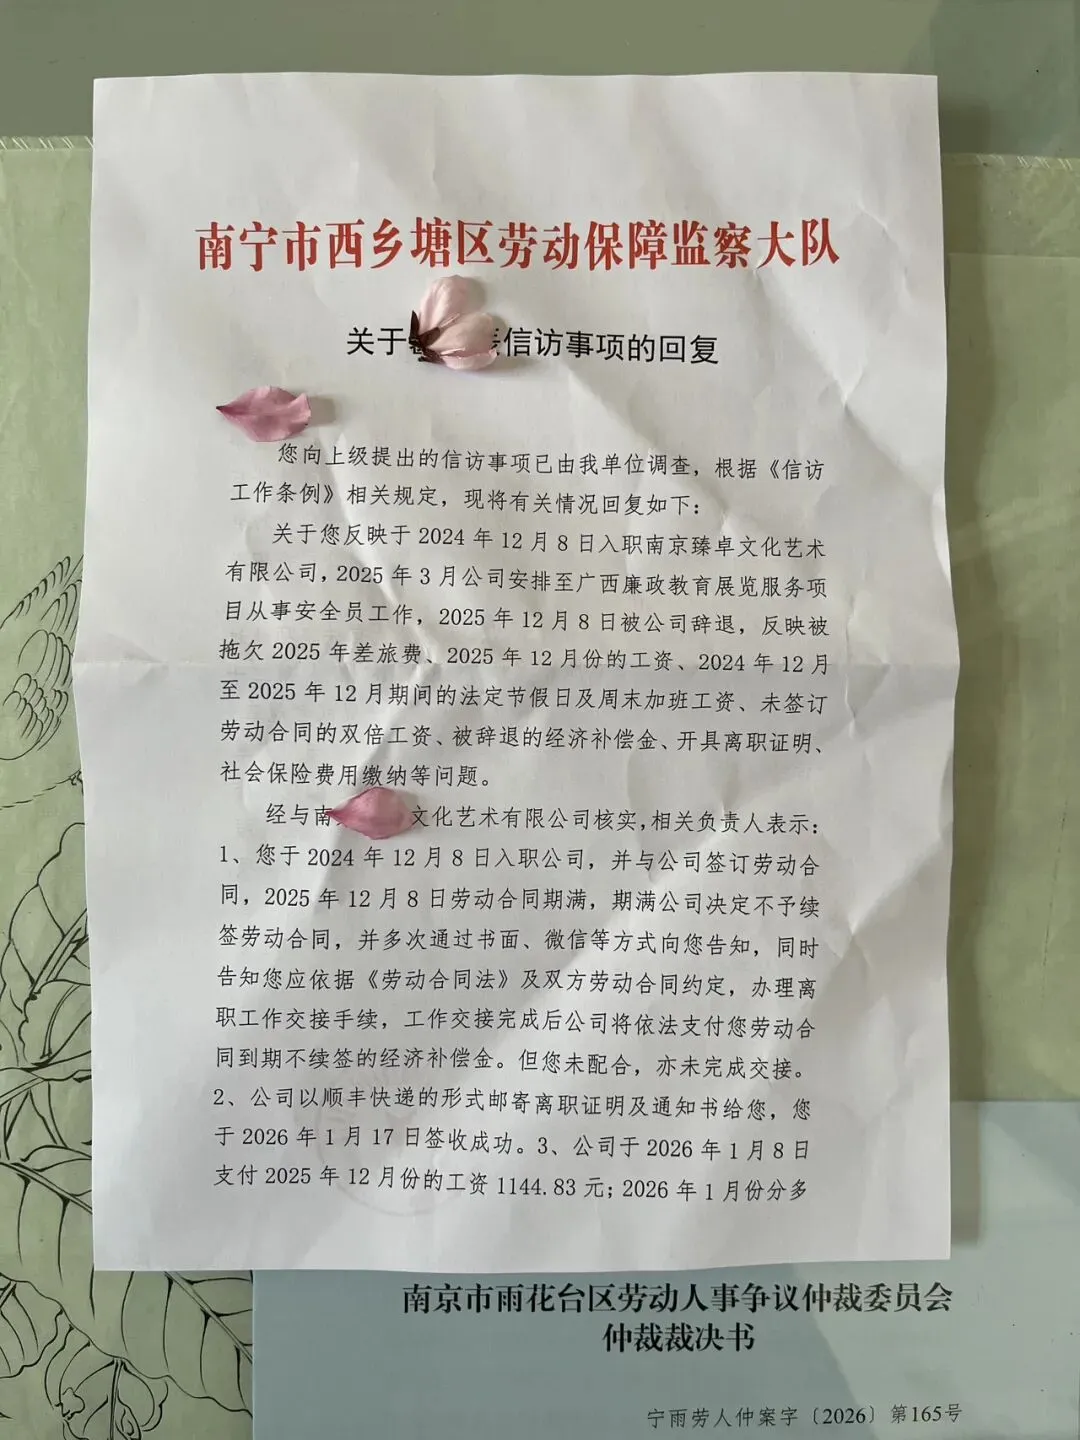 南宁市西乡塘区劳动保障监察大队
关于 信访事项的回复
您向上级提出的信访事项已由我单位调查，根据《信访
工作条例》相关规定，现将有关情况回复如下：
关于您反映于 2024 年 12 月 8 日入职南京臻卓文化艺术
有限公司，2025 年 3 月公司安排至广西廉政教育展览服务项
目从事安全员工作，2025 年 12 月 8 日被公司辞退，反映被
拖欠 2025 年差旅费、2025 年 12 月份的工资、2024 年 12 月
至 2025 年 12 月期间的法定节假日及周末加班工资、未签订
劳动合同的双倍工资、被辞退的经济补偿金、开具离职证明、
社会保险费用缴纳等问题。
经与南 文化艺术有限公司核实，相关负责人表示：
1、您于 2024 年 12 月 8 日入职公司，并与公司签订劳动合
同，2025 年 12 月 8 日劳动合同期满，期满公司决定不予续
签劳动合同，并多次通过书面、微信等方式向您告知，同时
告知您应依据《劳动合同法》及双方劳动合同约定，办理离
职工作交接手续，工作交接完成后公司将依法支付您劳动合
同到期不续签的经济补偿金。但您未配合，亦未完成交接。
2、公司以顺丰快递的形式邮寄离职证明及通知书给您，您
于 2026 年 1 月 17 日签收成功。3、公司于 2026 年 1 月 8 日
支付 2025 年 12 月份的工资 1144.83 元；2026 年 1 月份分多
南京市雨花台区劳动人事争议仲裁委员会
仲裁裁决书
宁雨劳人仲案字〔2026〕第165号